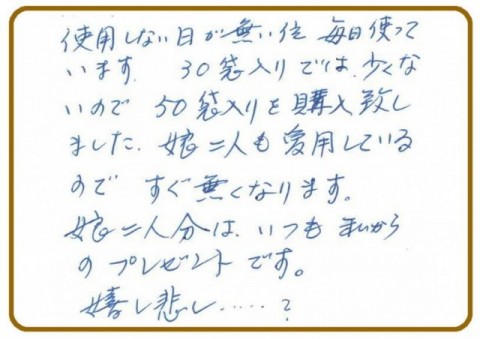 使用しない日が無い位 毎日使って
います. 30袋入りでは、少くな
いので 50袋入りを購入致し
ました. 娘二人も愛用している
ので すぐ無くなります。
娘二人分は、いつも 私から
のプレゼントです。
嬉し悲し……?